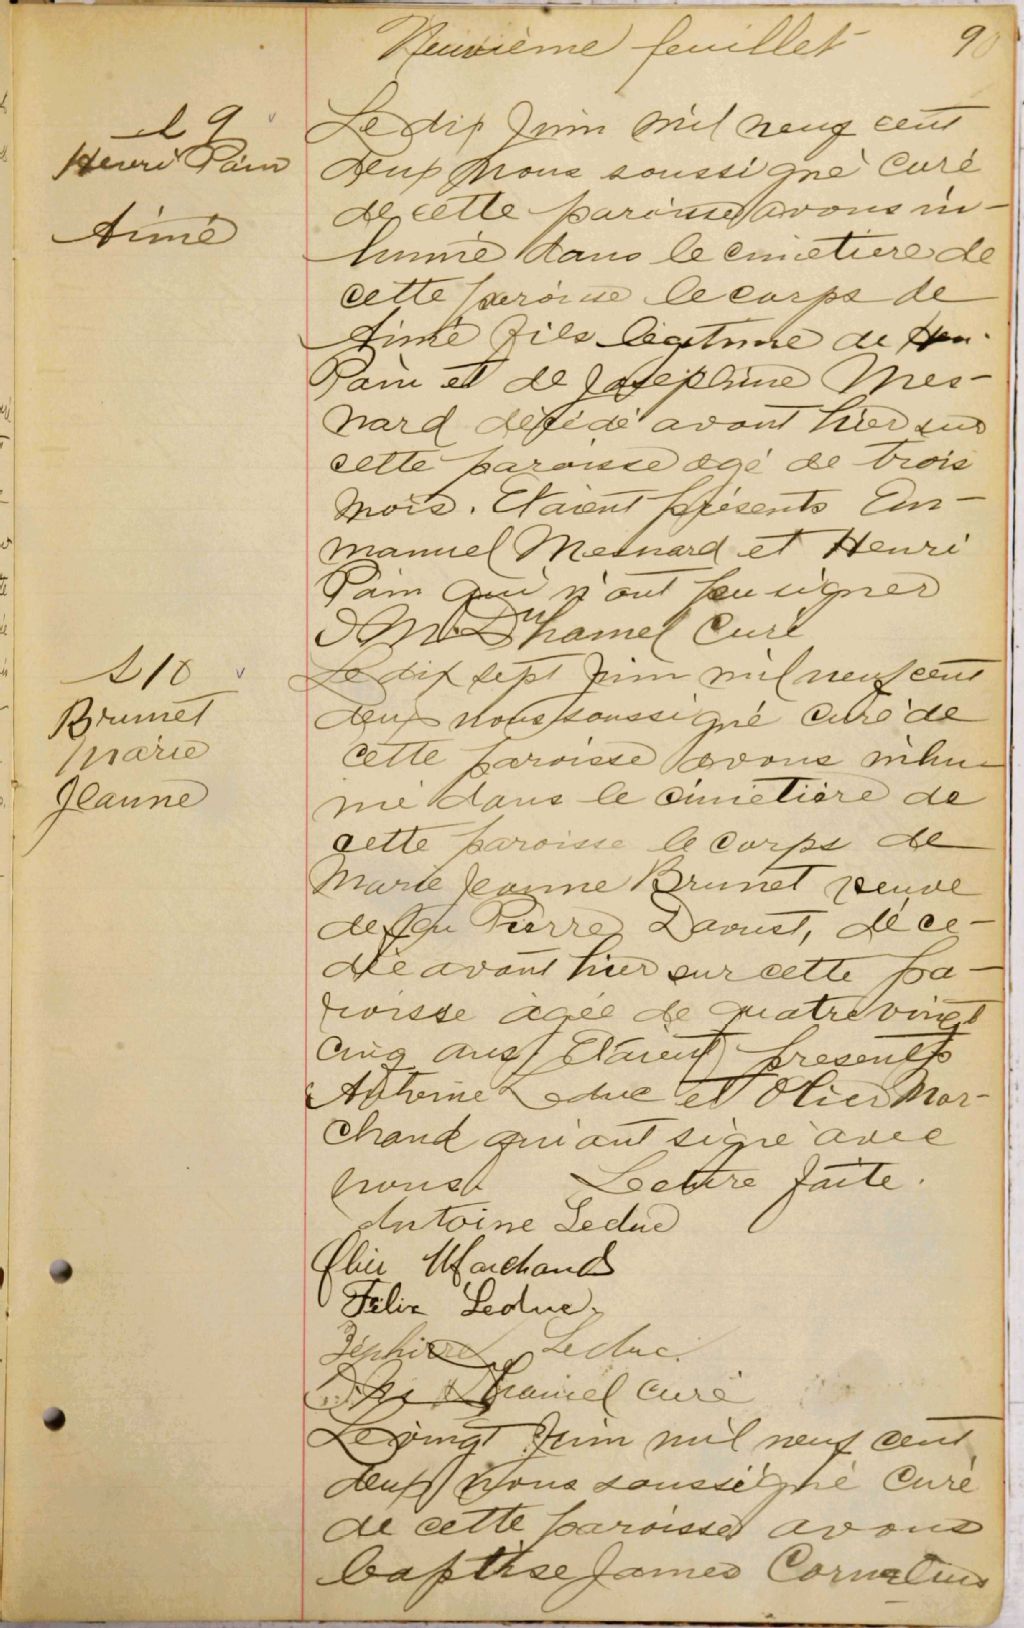 Neuvième feuillet 90
S 9
Henri Pain
Aimé
Le dix Juin mil neuf cent
deux nous soussigné curé
de cette paroisse avons in-
humé dans le cimetiere de
cette paroisse le corps de
Aimé fils legitime de Hen.
Pain et de Josephine Mes-
nard décédé avant hier sur
cette paroisse agé de trois
mois. Etaient présents Em-
manuel Mesnard et Henri
Pain qui n'ont pu signer
Duhamel Curé
S 10
Brunet
Marie
Jeanne
Le dix sept Juin mil neuf cent
deux nous soussigné curé de
cette paroisse avons inhu-
mé dans le cimetière de
cette paroisse le corps de
Marie Jeanne Brunet veuve
de feu Pierre Daoust, déce-
dée avant hier sur cette pa-
roisse agée de quatre vingt
cinq ans Etaient presents
Antoine Leduc et Olier Mar-
chand qui ont signé avec
nous. Lecture faite.
Antoine Leduc
Olier Marchand
Félix Leduc.
Zéphirre Leduc.
Duhamel curé
Le vingt Juin mil neuf cent
deux nous soussigné Curé
de cette paroisse avons
baptise James Cornelius